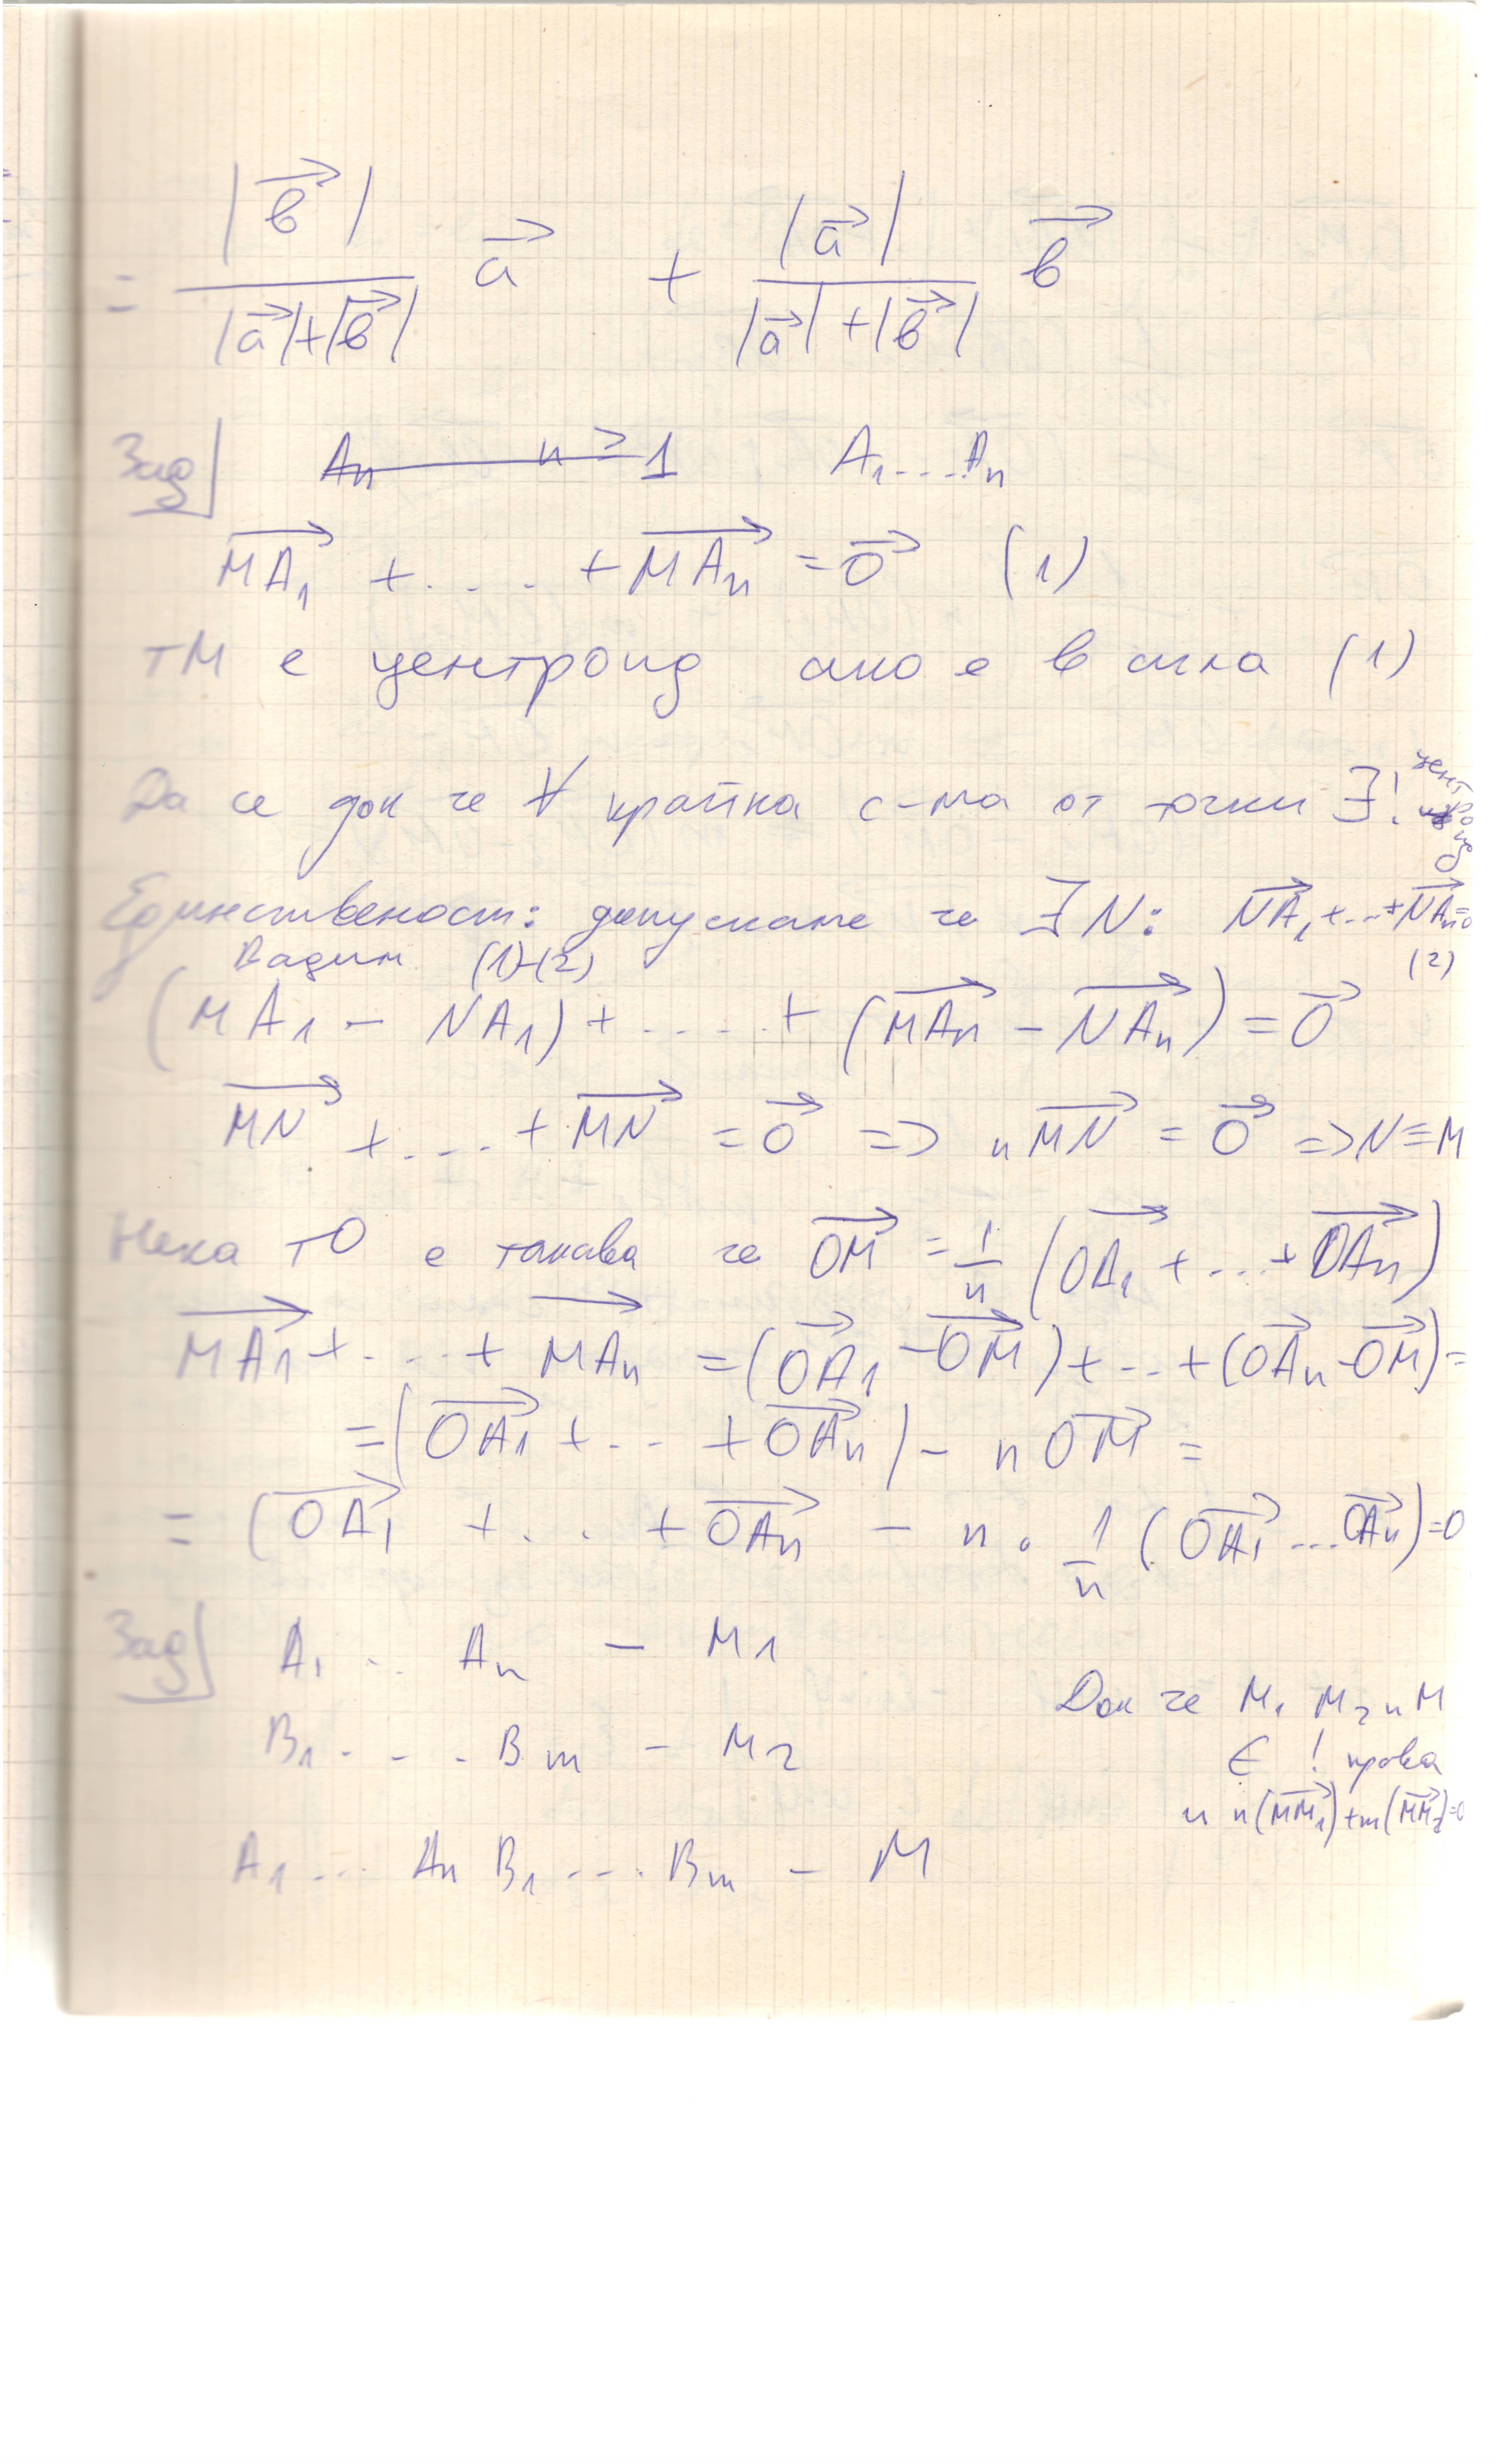 = |b⃗| / (|a⃗|+|b⃗|) a⃗ + |a⃗| / (|a⃗|+|b⃗|) b⃗
Зад] A̶n̶ ̶n̶ ̶≥̶ ̶1̶ A₁....An
MA₁⃗ + .... + MAn⃗ = 0⃗ (1)
тM е центроид ако е в сила (1)
Да се док че ∀ крайна с-ма от точки ∃! центроид
Единственост: допускаме че ∃ N: NA₁⃗ +...+ NAn⃗ = 0
Вадим (1)-(2) (2)
(MA₁ - NA₁) + ..... + (MAn⃗ - NAn⃗) = 0⃗
MN⃗ + .... + MN⃗ = 0⃗ => n MN⃗ = 0⃗ => N≡M
Нека тO е такава че OM⃗ = 1/n (OA₁⃗ + ... + OAn⃗)
MA₁⃗ + .... + MAn⃗ = (OA₁⃗ - OM⃗) + ... + (OAn⃗ - OM⃗) =
= (OA₁⃗ + ... + OAn⃗) - n OM⃗ =
= (OA₁⃗ + ... + OAn⃗ - n . 1/n (OA₁⃗ ... OAn⃗) = 0
Зад] A₁ ... An - M₁
Док че M₁ M₂ и M
B₁.... Bm - M₂
∈ ! права
и n(MM₁⃗) + m(MM₂⃗) = 0
A₁... An B₁.... Bm - M